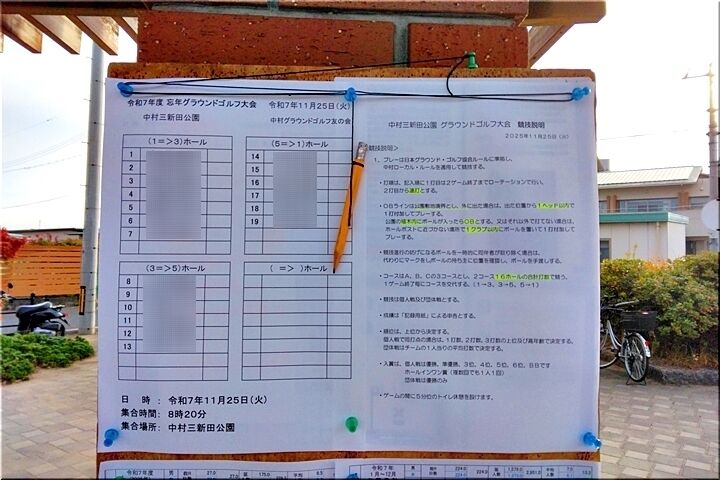 令和7年度 忘年グラウンドゴルフ大会 令和7年11月25日(火)
中村三新田公園 中村グラウンドゴルフ友の会
(1=>3)ホール
1
2
3
4
5
6
7
(5=>1)ホール
14
15
16
17
18
19
(3=>5)ホール
8
9
10
11
12
13
( => )ホール
日 時: 令和7年11月25日(火)
集合時間: 8時20分
集合場所: 中村三新田公園
中村三新田公園 グラウンドゴルフ大会 競技説明
2025年11月25日(火)
競技説明>
1、プレーは日本グラウンド・ゴルフ協会ルールに準拠し、
中村ローカル・ルールを適用して競技する。
・打順は、記入順に1打目は2ゲーム終了までローテーションで行い、
2打目から遠打とする。
・OBラインは公園敷地境界とし、外に出た場合は、出た位置から1ヘッド以内で
1打付加してプレーする。
公園の植木内にボールが入ったらOBとする。又はそれ以外で打てない場合は、
ホールポストに近づかない場所で1クラブ以内にボールを置いて1打付加して
プレーする。
・競技進行の妨げになるボールを一時的に同伴者が取り除く場合は、
代わりにマークをしボールの持ち主に位置を確認し、ボールを手渡しする。
・コースはA、B、Cの3コースとし、2コース16ホールの合計打数で競う。
1ゲーム終了毎にコースを交代する。(1→3、3→5、5→1)
・競技は個人戦及び団体戦とする。
・成績は「記録用紙」による申告とする。
・順位は、上位から決定する。
個人戦で同打点の場合は、1打数、2打数、3打数の上位及び高年齢で決定する。
団体戦はチームの1人当りの平均打数で決定する。
・入賞は、個人戦は優勝、準優勝、3位、4位、5位、6位、BBです
ホールインワン賞(複数回でも1人1回)
団体戦は優勝のみ
・ゲームの間に5分位のトイレ休憩を設けます。
令和7年度
令和7年
1月~12月